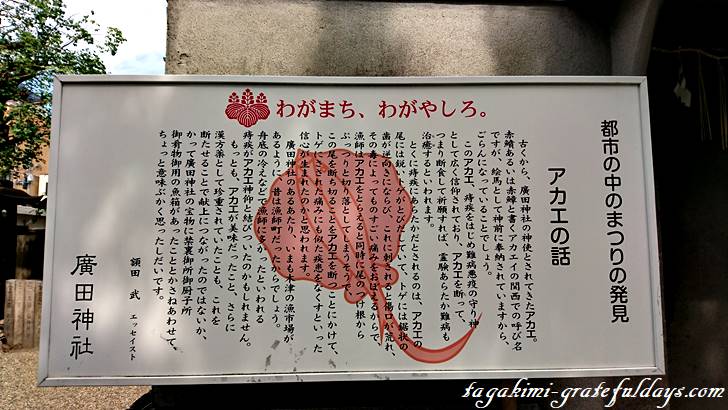 わがまち、わがやしろ。
都市の中のまつりの発見
アカエの話
古くから、廣田神社の神使とされてきたアカエ。
赤鱝あるいは赤鱏と書くアカエイの関西での呼び名
ですが、絵馬として神前に奉納されていますから、
ごらんになっていることでしょう。
このアカエ、痔疾をはじめ難病悪疫の守り神
として広く信仰されており、アカエを断って、
つまり断食して祈願すれば、霊験あらたか難病も
治癒するといわれます。
とくに痔疾にあらたかだとされるのは、アカエの
尾には鋭いトゲがとびだしていて、トゲには鋸状の
歯が逆向きにならび、これに刺されると傷口が荒れ、
その毒によってものすごい痛みをおぼえるからで、
漁師はアカエをとらえると同時に尾のつけ根から
ぶっつりと切り落としてしまうそうで、
この尾を断ち切ることをアカエを断つことにかけて、
トゲにさされた痛みにも似た疾患をなくすといった
信心が生まれたのかと思われます。
廣田神社のあるあたり、いまも木津の漁市場が
あるように、昔は漁師町だったからでしょう。
舟底の冷えなどで漁師に多かったといわれる
痔疾がアカエ神仰と結びついたのかもしれません。
もっとも、アカエが美味だったこと、さらに
漢方薬として珍重されていたことも、これを
断たせることで献上につながったのではないか、
かって廣田神社の宝物に禁裏御所御厨子所
御肴物御用の魚箱があったこととかさねあわせて、
ちょっと意味ぶかく思ったしだいです。
額田 武 エッセイスト
廣田神社
tagakimi-gratefuldays.com